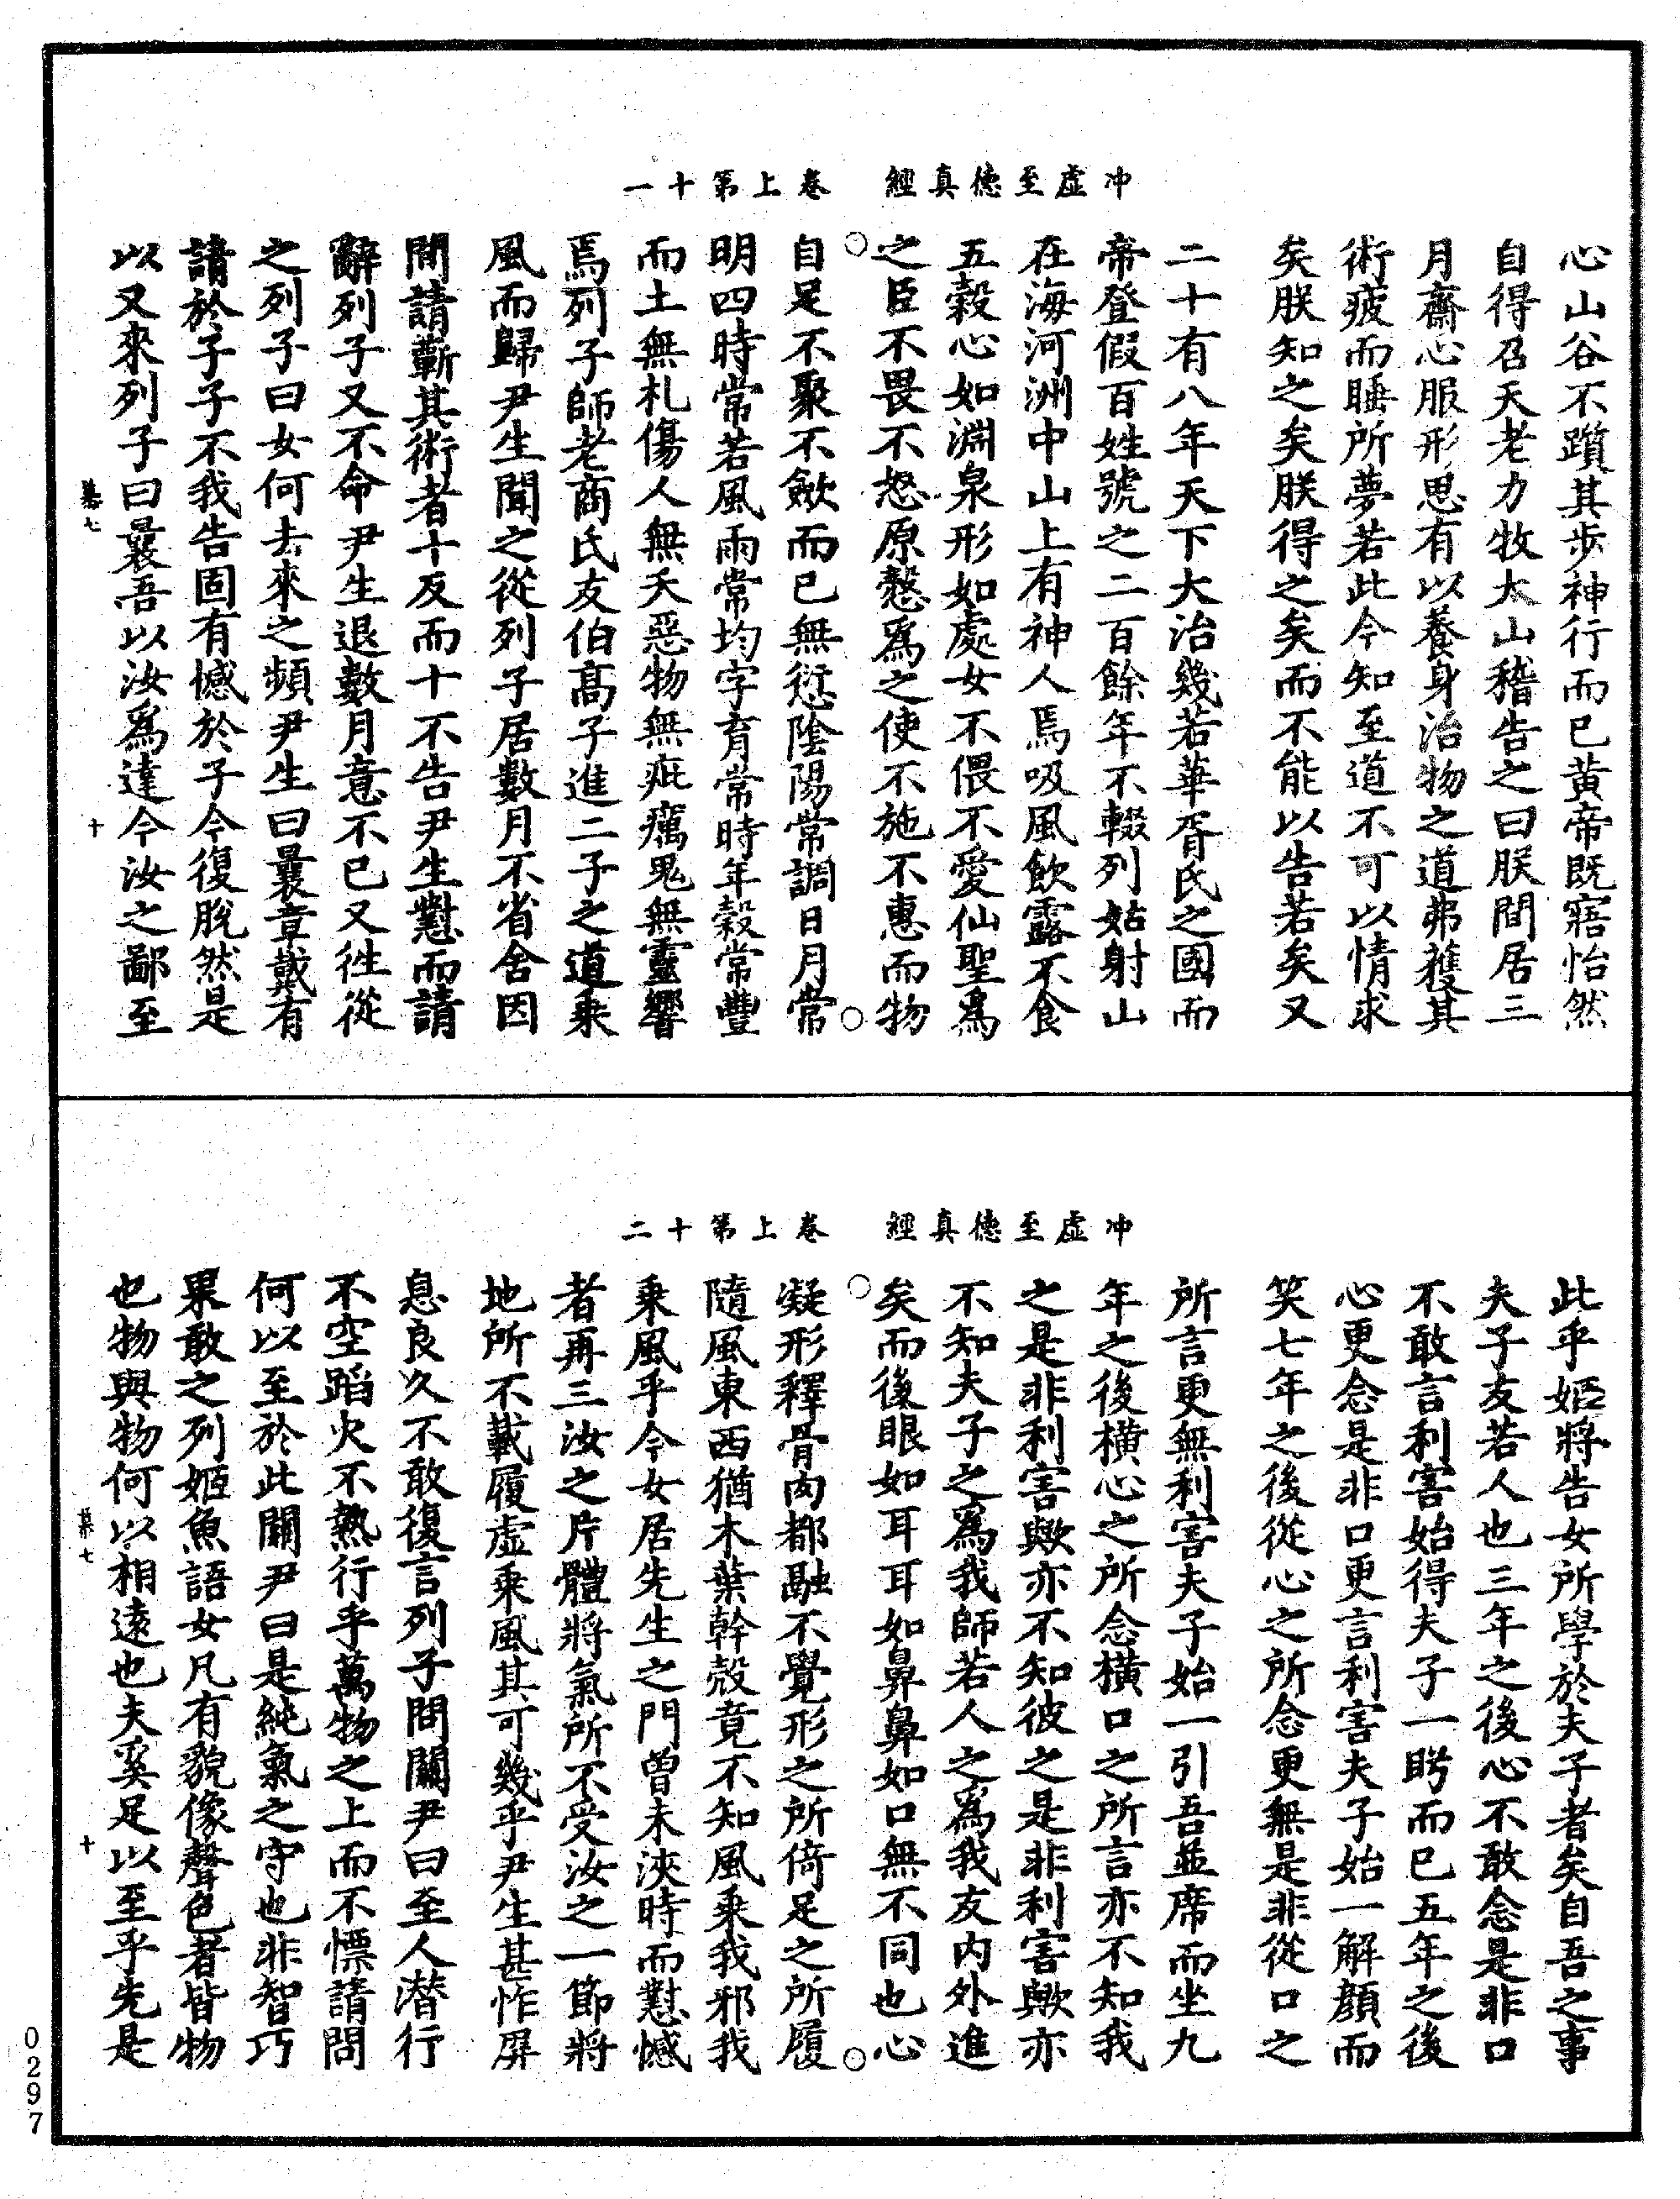 冲虛至德真經　卷上第十一
心山谷不躓其步神行而已黃帝既寤怡然
自得召天老力牧太山稽告之曰朕間居三
月齋心服形思有以養身治物之道弗獲其
術疲而睡所夢若此今知至道不可以情求
矣朕知之矣朕得之矣而不能以告若矣又
二十有八年天下大治幾若華胥氏之國而
帝登假百姓號之二百餘年不輟列姑射山
在海河洲中山上有神人焉吸風飲露不食
五穀心如淵泉形如處女不偎不愛仙聖爲
之臣不畏不怒原慤爲之使不施不惠而物
自足不聚不歛而已無愆陰陽常調日月常
明四時常若風雨常均字育常時年穀常豐
而土無札傷人無夭惡物無疵癘鬼無靈響
焉列子師老商氏友伯髙子進二子之道乗
風而歸尹生聞之從列子居數月不省舍因
間請蘄其術者十反而十不告尹生懟而請
辭列子又不命尹生退數月意不已又徃從
之列子曰女何去來之頻尹生曰曩章戴有
請於子子不我告固有憾於子今復脫然是
以又來列子曰曩吾以汝爲達今汝之鄙至
慕七　十
冲虛至德真經　卷上第十二
此乎姬將告女所學於夫子者矣自吾之事
夫子友若人也三年之後心不敢念是非口
不敢言利害始得夫子一眄而已五年之後
心更念是非口更言利害夫子始一解顔而
笑七年之後從心之所念更無是非從口之
所言更無利害夫子始一引吾並席而坐九
年之後橫心之所念橫口之所言亦不知我
之是非利害歟亦不知彼之是非利害歟亦
不知夫子之爲我師若人之爲我友內外進
矣而後眼如耳耳如鼻鼻如口無不同也心
凝形釋骨肉都融不覺形之所倚足之所履
隨風東西猶木葉幹殼竟不知風乗我邪我
乗風乎今女居先生之門曾未浹時而懟憾
者再三汝之片體將氣所不受汝之一節將
地所不載履虛乗風其可幾乎尹生甚怍屏
息良久不敢復言列子問關尹曰至人潛行
不空蹈火不熱行乎萬物之上而不慄請問
何以至於此關尹曰是純氣之守也非智巧
果敢之列姬魚語女凡有貌像聲色者皆物
也物與物何以相遠也夫奚足以至乎先是
慕七　十
0297